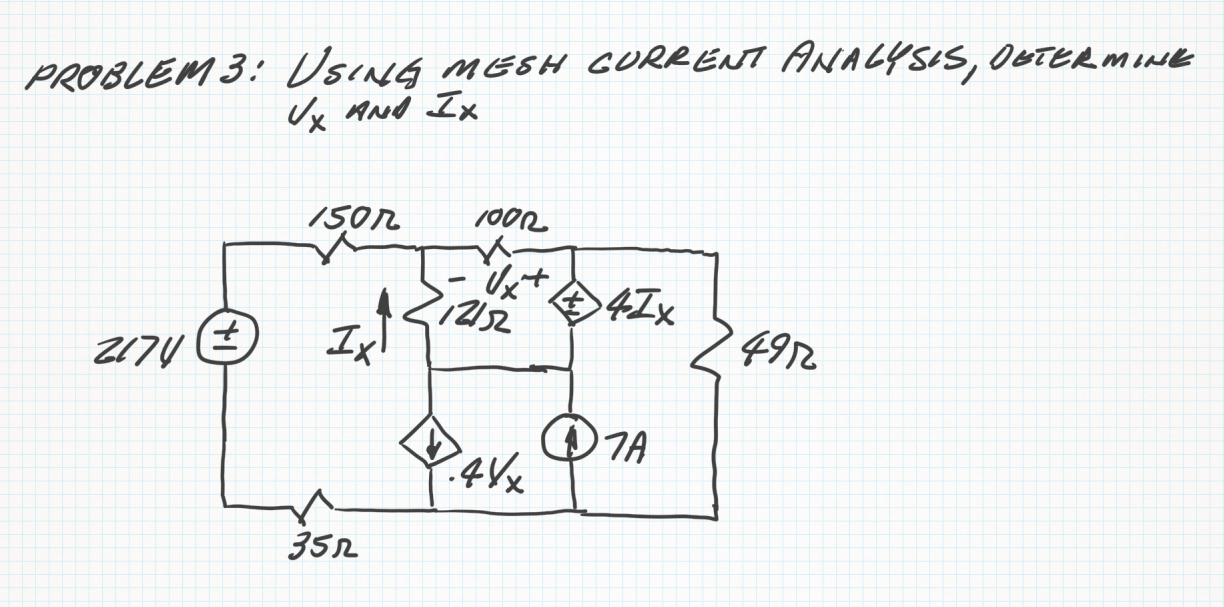 PROBLEM 3: USING MESH CURRENT ANALYSIS, DETERMINE
Vx AND Ix
150Ω
100Ω
- Vx +
217V
+
-
Ix
121Ω
+
-
4Ix
49Ω
.4Vx
7A
35Ω